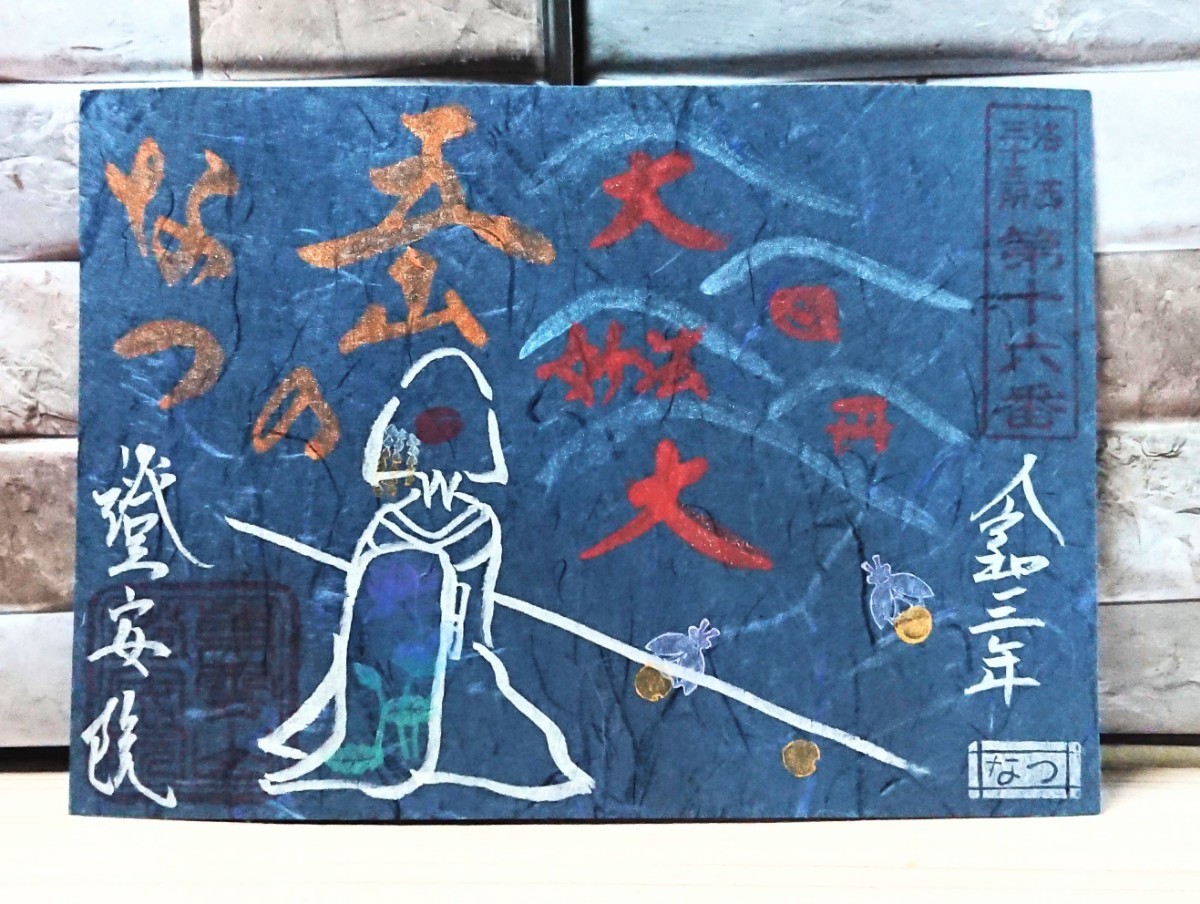 洛西
三十三所
第十六番
令和三年
なつ
大
妙法
大
五山
の
なつ
證安院